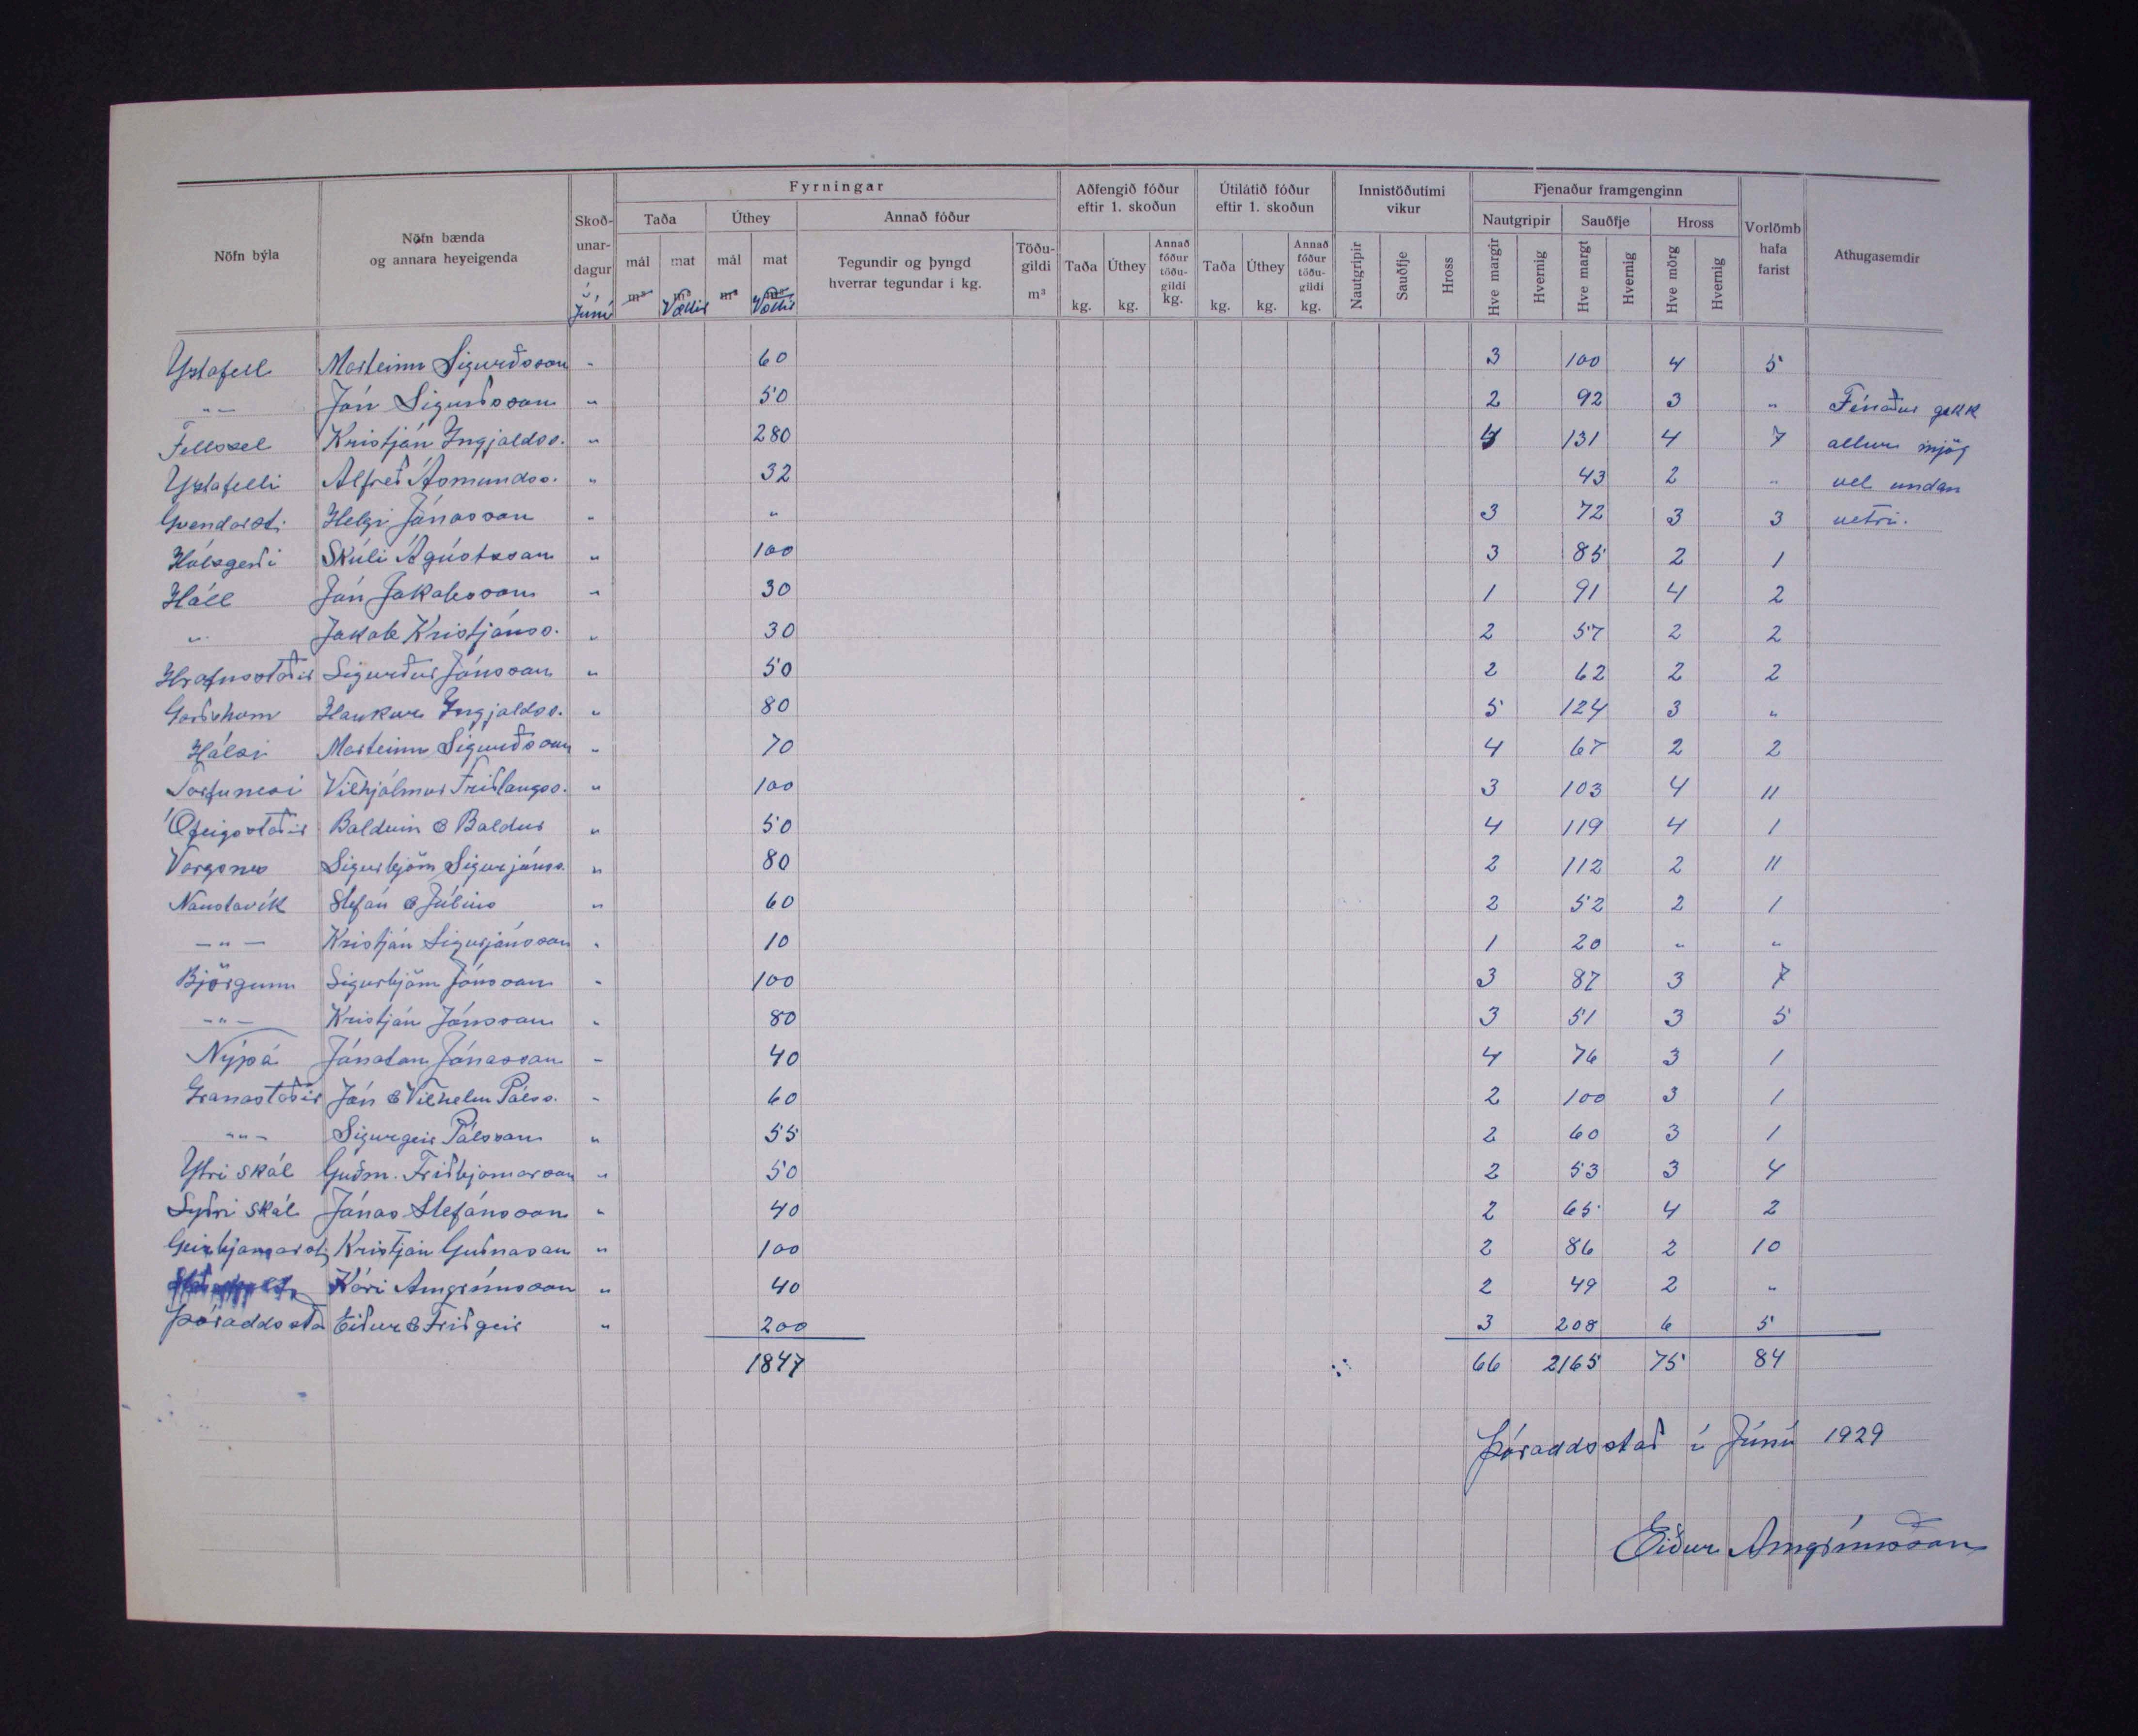 Fyrningar
Aðfengið fóður eftir 1. skoðun
Útilátið fóður eftir 1. skoðun
Innistöðutími vikur
Fjenaður framgenginn
Nöfn býla
Nöfn bænda og annara heyeigenda
Skoð-unar-dagur í Júní
Taða
Úthey
Annað fóður
Nautgripir
Sauðfje
Hross
Vorlömb hafa farist
Athugasemdir
mál m³
mat m³ Vættir
mál m³
mat m³ Vættir
Tegundir og þyngd hverrar tegundar í kg.
Töðu-gildi m³
Taða kg.
Úthey kg.
Annað fóður töðu-gildi kg.
Taða kg.
Úthey kg.
Annað fóður töðu-gildi kg.
Nautgripir
Sauðfje
Hross
Hve margir
Hvernig
Hve margt
Hvernig
Hve mörg
Hvernig
Ystafell Marteinn Sigurðsson " 60 3 100 4 5
-"- Jón Sigurðsson " 50 2 92 3 " Fénaður gekk
Fellssel Kristján Ingjaldss. " 280 4 131 4 7 allur mjög
Ystafelli Alfreð Ásmundss. " 32 43 2 " vel undan
Gvendarst. Helgi Jónasson " " 3 72 3 3 vetri.
Hálsgerði Skúli Ágústsson " 100 3 85 2 1
Háll Jón Jakobsson " 30 1 91 4 2
" Jakob Kristjánss. " 30 2 57 2 2
Hrafnsstaðir Sigurður Jónsson " 50 2 62 2 2
Garðshorn Haukur Ingjaldss. " 80 5 124 3 "
Hálsi Marteinn Sigurðsson " 70 4 67 2 2
Torfunesi Vilhjálmur Friðlaugss. " 100 3 103 4 11
Ófeigsstaðir Balduin & Baldur " 50 4 119 4 1
Vargsnes Sigurbjörn Sigurjónss. " 80 2 112 2 11
Naustavík Stefán & Júlíus " 60 2 52 2 1
-"- Kristján Sigurjónsson " 10 1 20 " "
Björgum Sigurbjörn Jónsson " 100 3 87 3 7
-"- Kristján Jónsson " 80 3 51 3 5
Nýpá Jónatan Jónasson " 40 4 76 3 1
Granastaðir Jón & Vilhelm Pálss. " 60 2 100 3 1
-"- Sigurgeir Pálsson " 55 2 60 3 1
Ytri skál Guðm. Friðbjarnarson " 50 2 53 3 4
Syðri skál Jónas Stefánsson " 40 2 65 4 2
Geirbjarnarst. Kristján Guðnason " 100 2 86 2 10
Kári Arngrímsson " 40 2 49 2 "
Þóroddsstað Eiður & Friðgeir " 200 3 208 6 5
1847 66 2165 75 84
Þóroddsstað í Júní 1929
Eiður Arngrímsson